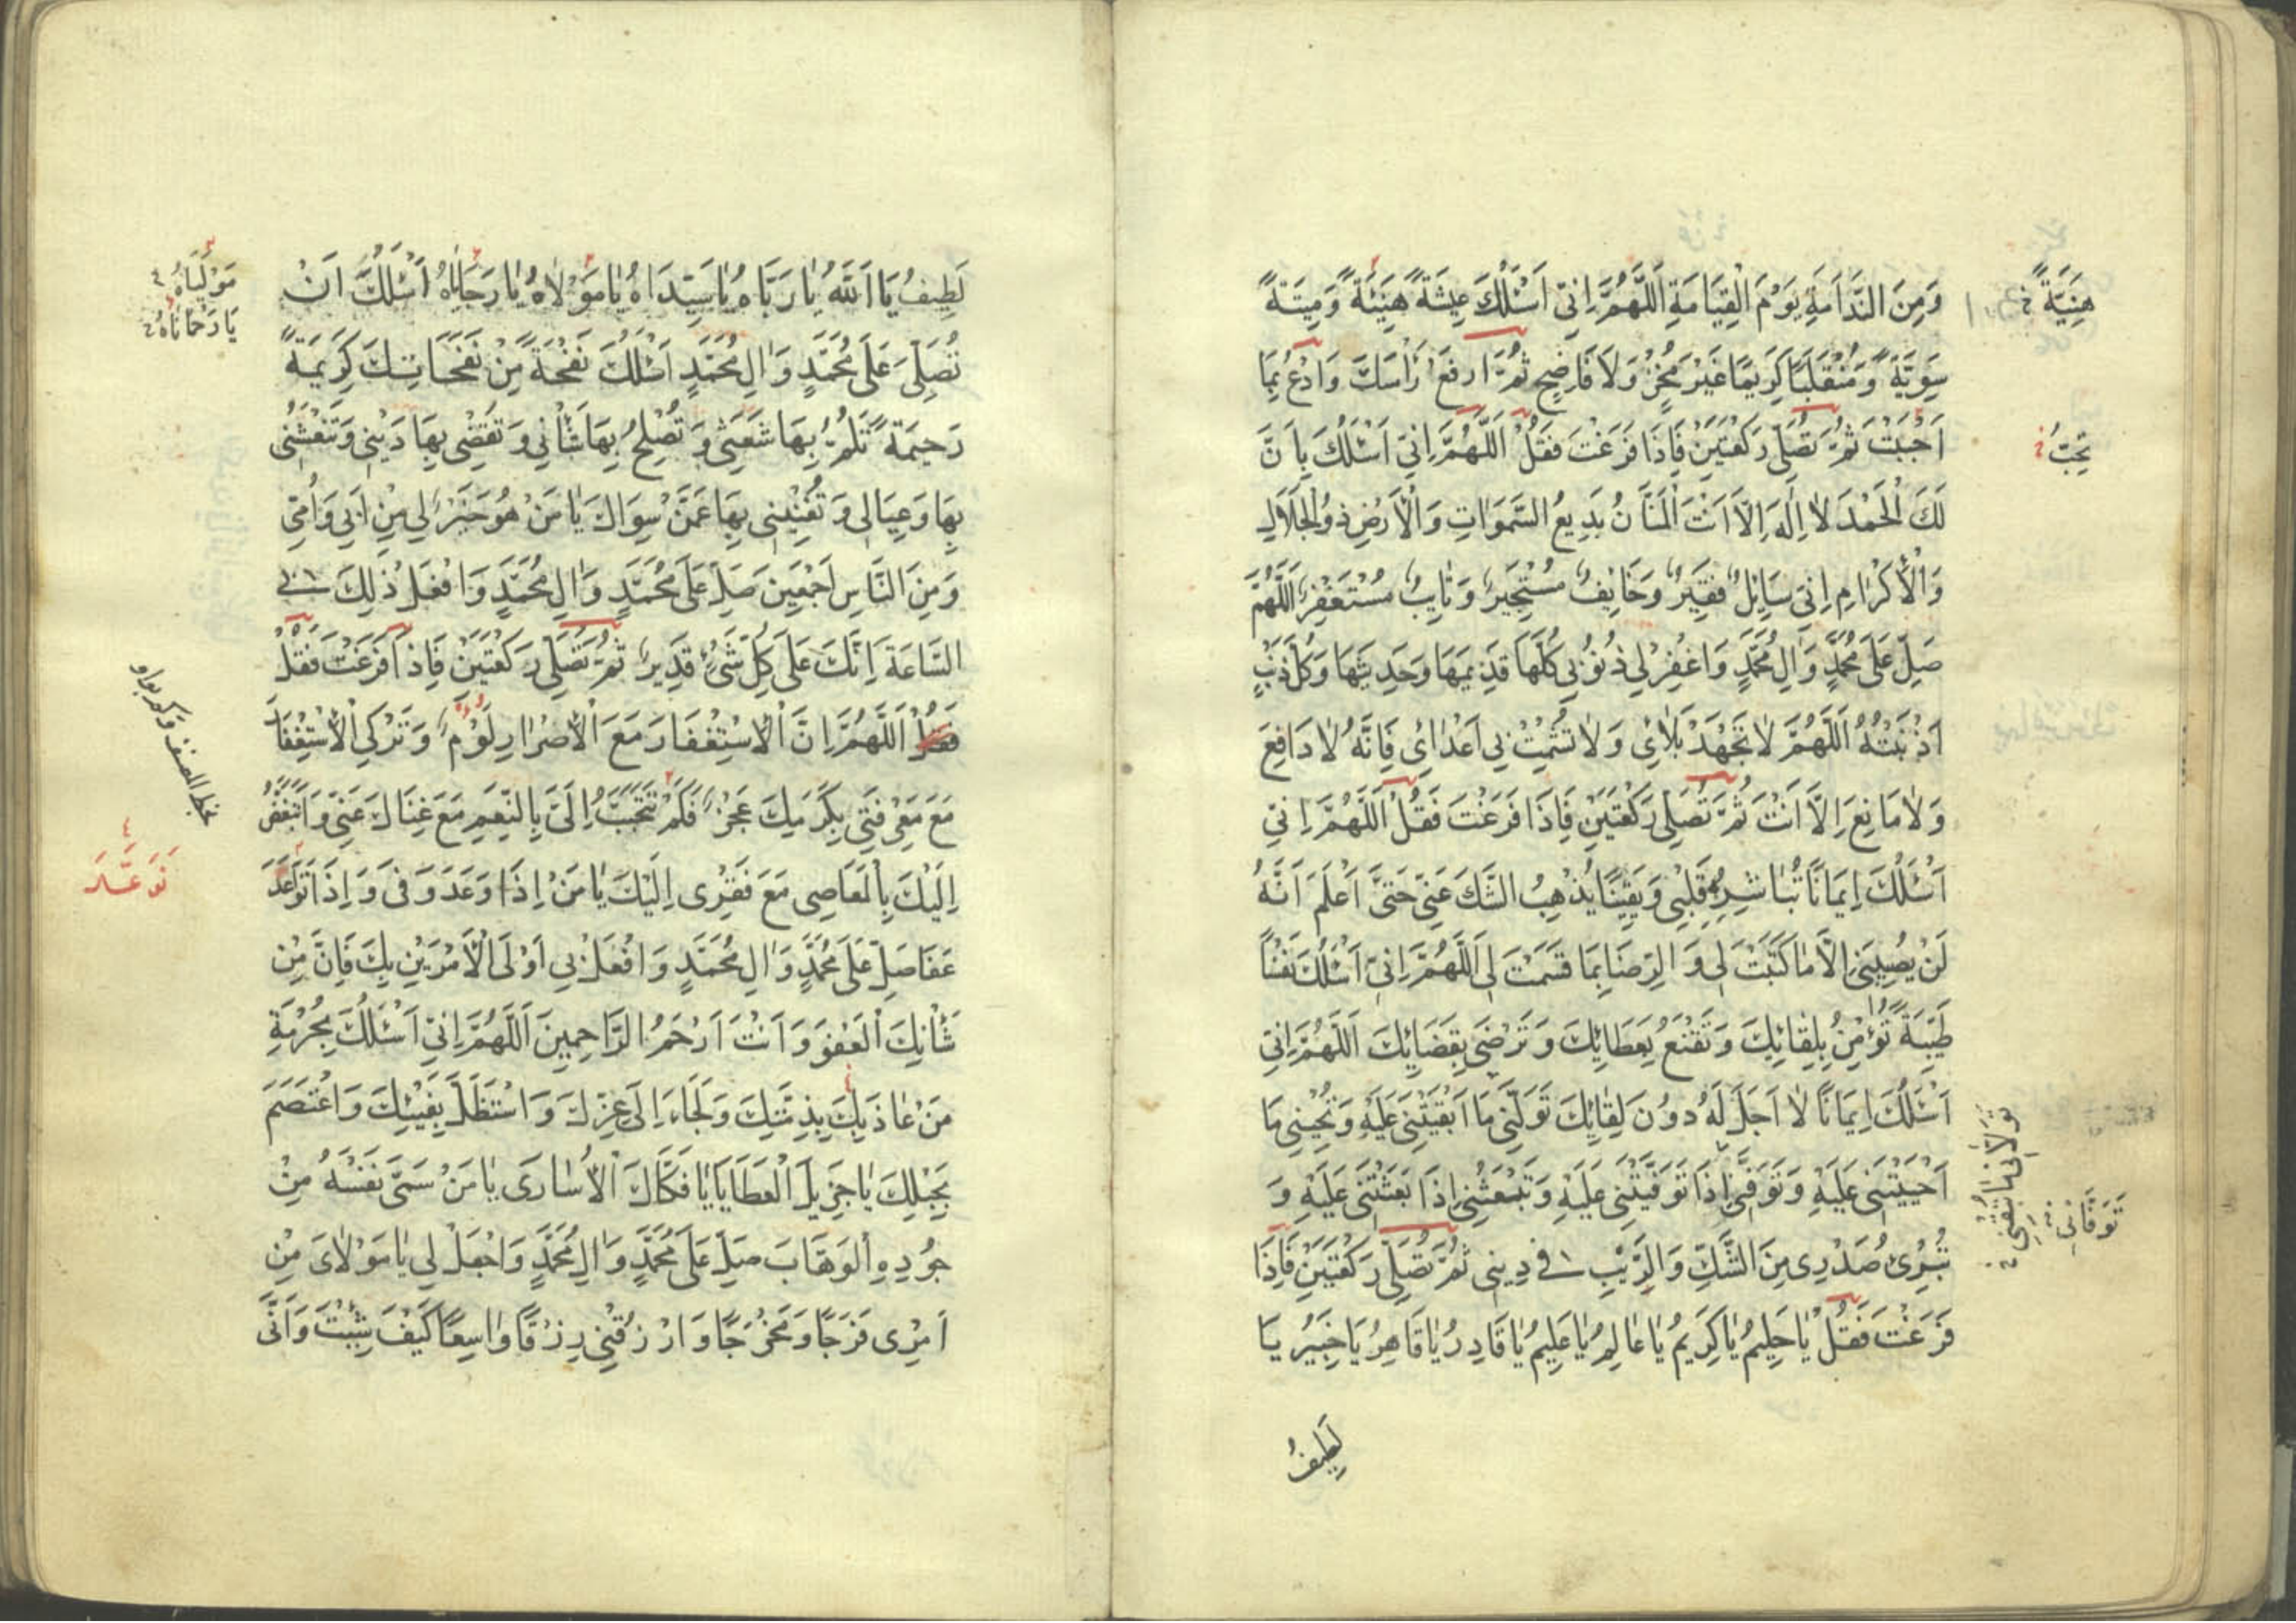 وَمِنَ النَّدَامَةِ يَوْمَ الْقِيَامَةِ اَللّٰهُمَّ اِنّي اَسْئَلُكَ عِيشَةً هَنِيئَةً وَمِيتَةً
سَوِيَّةً وَمُنْقَلَبًا كَرِيمًا غَيْرَ مُخْزٍ وَلَا فَاضِحٍ ثُمَّ ارفَعْ رَأْسَكَ وَادْعُ بِمَا
اَحْبَبْتَ ثُمَّ تُصَلّى رَكْعَتَيْنِ فَاِذَا فَرَغْتَ فَقُلْ اَللّٰهُمَّ اِنّي اَسْئَلُكَ بِاَنَّ
لَكَ الْحَمْدَ لَا اِلٰهَ اِلَّا اَنْتَ الْمَنَّانُ بَدِيعُ السَّمَوَاتِ وَالْاَرْضِ ذُو الْجَلَالِ
وَالْاِكْرَامِ اِنّي سَايِلٌ فَقِيرٌ وَخَايِفٌ مُسْتَجِيرٌ وَتَايِبٌ مُسْتَغْفِرٌ اَللّٰهُمَّ
صَلِّ عَلَى مُحَمَّدٍ وَالِ مُحَمَّدٍ وَاغْفِرْ لِي ذُنُوبِي كُلَّهَا قَدِيمَهَا وَحَدِيثَهَا وَكُلَّ ذَنْبٍ
اَذْنَبْتُهُ اَللّٰهُمَّ لَا تَجْهَدْ بَلَائِي وَلَا تُشْمِتْ بِي اَعْدَائِي فَاِنَّهُ لَا دَافِعَ
وَلَا مَانِعَ اِلَّا اَنْتَ ثُمَّ تُصَلّى رَكْعَتَيْنِ فَاِذَا فَرَغْتَ فَقُلْ اَللّٰهُمَّ اِنّي
اَسْئَلُكَ اِيمَانًا تُبَاشِرُ بِهِ قَلْبِي وَيَقِينًا يُذْهِبُ الشَّكَ عَنّي حَتّىٰ اَعْلَمَ اَنَّهُ
لَنْ يُصِيبَنِي اِلَّا مَا كَتَبْتَ لِي وَالرِّضَا بِمَا قَسَمْتَ لِي اَللّٰهُمَّ اِنّي اَسْئَلُكَ نَفْسًا
طَيِّبَةً تُؤْمِنُ بِلِقَائِكَ وَتَقْنَعُ بِعَطَائِكَ وَتَرْضَى بِقَضَايِكَ اَللّٰهُمَّ اِنّي
اَسْئَلُكَ اِيمَانًا لَا اَجَلَ لَهُ دُونَ لِقَائِكَ تَوَلَّنِي مَا اَبْقَيْتَنِي عَلَيْهِ وَتُحْيِينِي مَا
اَحْيَيْتَنِي عَلَيْهِ وَتَوَفَّنِي اِذَا تَوَفَّيْتَنِي عَلَيْهِ وَتَبْعَثُنِي اِذَا بَعَثْتَنِي عَلَيْهِ وَ
تُبْرِئُ صَدْرِي مِنَ الشَّكِّ وَالرَّيْبِ فِي دِينِي ثُمَّ تُصَلّى رَكْعَتَيْنِ فَاِذَا
فَرَغْتَ فَقُلْ يَا حَلِيمُ يَا كَرِيمُ يَا عَالِمُ يَا عَلِيمُ يَا قَادِرُ يَا قَاهِرُ يَا خَبِيرُ يَا
لَطِيفُ
هَنِيَّةً
تُحِبُّ
تَوَفَّانِي
لَطِيفُ يَا اَللّٰهُ يَا رَبَّاهُ يَا سَيِّدَاهُ يَا مَوْلَاهُ يَا رَجَايَاهُ اَسْئَلُكَ اَنْ
تُصَلِّىَ عَلَى مُحَمَّدٍ وَالِ مُحَمَّدٍ اَسْئَلُكَ نَفْحَةً مِنْ نَفَحَاتِكَ كَرِيمَةً
رَحِيمَةً تَلُمُّ بِهَا شَعَثِي وَتُصْلِحُ بِهَا شَأْنِي وَتَقْضِي بِهَا دَيْنِي وَتَنْعَشُنِي
بِهَا وَعِيَالِي وَتُغْنِينِي بِهَا عَمَّنْ سِوَاكَ يَا مَنْ هُوَ خَيْرٌ لِي مِنْ اَبِي وَاُمّي
وَمِنَ النَّاسِ اَجْمَعِينَ صَلِّ عَلَى مُحَمَّدٍ وَالِ مُحَمَّدٍ وَافْعَلْ ذٰلِكَ بِي
السَّاعَةَ اِنَّكَ عَلَى كُلِّ شَيْءٍ قَدِيرٌ ثُمَّ تُصَلّى رَكْعَتَيْنِ فَاِذَا فَرَغْتَ فَقُلْ
اَللّٰهُمَّ اِنَّ الْاِسْتِغْفَارَ مَعَ الْاِصْرَارِ لَوْمٌ وَتَرْكِي الْاِسْتِغْفَارَ
مَعَ مَعْرِفَتِي بِكَرَمِكَ عَجْزٌ فَكَمْ تَتَحَبَّبُ اِلَيَّ بِالنِّعَمِ مَعَ غِنَاكَ عَنّي وَاَتَبَغَّضُ
اِلَيْكَ بِالْمَعَاصِي مَعَ فَقْرِي اِلَيْكَ يَا مَنْ اِذَا وَعَدَ وَفَى وَاِذَا تَوَاعَدَ
عَفَا صَلِّ عَلَى مُحَمَّدٍ وَالِ مُحَمَّدٍ وَافْعَلْ بِي اَوْلَى الْاَمْرَيْنِ بِكَ فَاِنَّ مِنْ
شَأْنِكَ الْعَفْوَ وَاَنْتَ اَرْحَمُ الرَّاحِمِينَ اَللّٰهُمَّ اِنّي اَسْئَلُكَ بِحُرْمَةِ
مَنْ عَاذَ بِكَ بِذِمَّتِكَ وَلَجَاءَ اِلَى عِزِّكَ وَاسْتَظَلَّ بِفَيْئِكَ وَاعْتَصَمَ
بِحَبْلِكَ يَا جَزِيلَ الْعَطَايَا يَا فَكَّاكَ الْاُسَارَى يَا مَنْ سَمّىٰ نَفْسَهُ مِنْ
جُودِهِ الْوَهَّابَ صَلِّ عَلَى مُحَمَّدٍ وَالِ مُحَمَّدٍ وَاجْعَلْ لِي يَا مَوْلَايَ مِنْ
اَمْرِي فَرَجًا وَمَخْرَجًا وَارْزُقْنِي رِزْقًا وَاسِعًا كَيْفَ شِئْتَ وَاَنّىٰ
يَا رَحْمَانَاهُ
تَوَعَّدَ